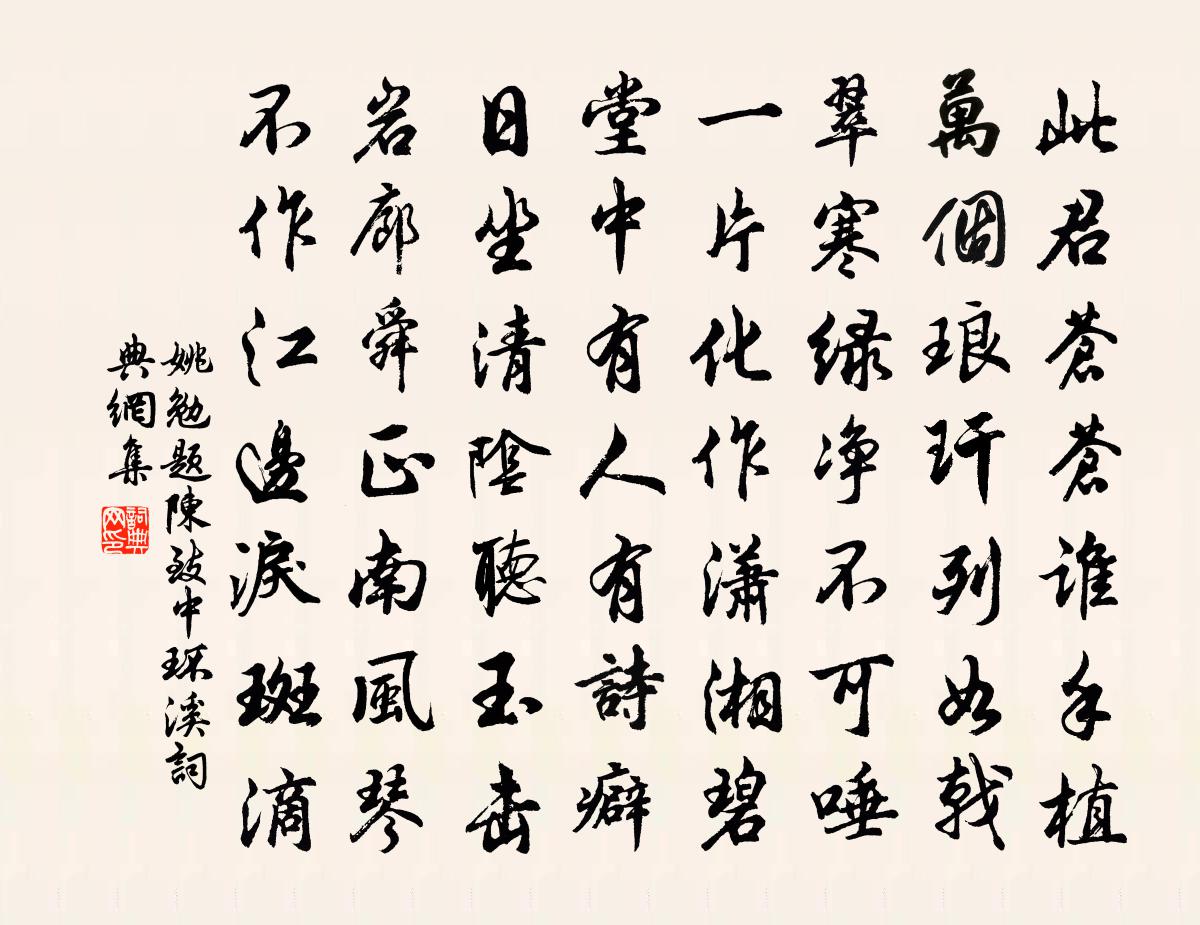 此君蒼蒼誰手植
萬個琅玕列如戟
翠寒緑净不可唾
一片化作瀟湘碧
堂中有人有詩癖
日坐清陰聽玉击
岩廊舜正南風琴
不作江邊淚斑滴
姚勉題陳致中琛溪詞
典網集
詞典
网印